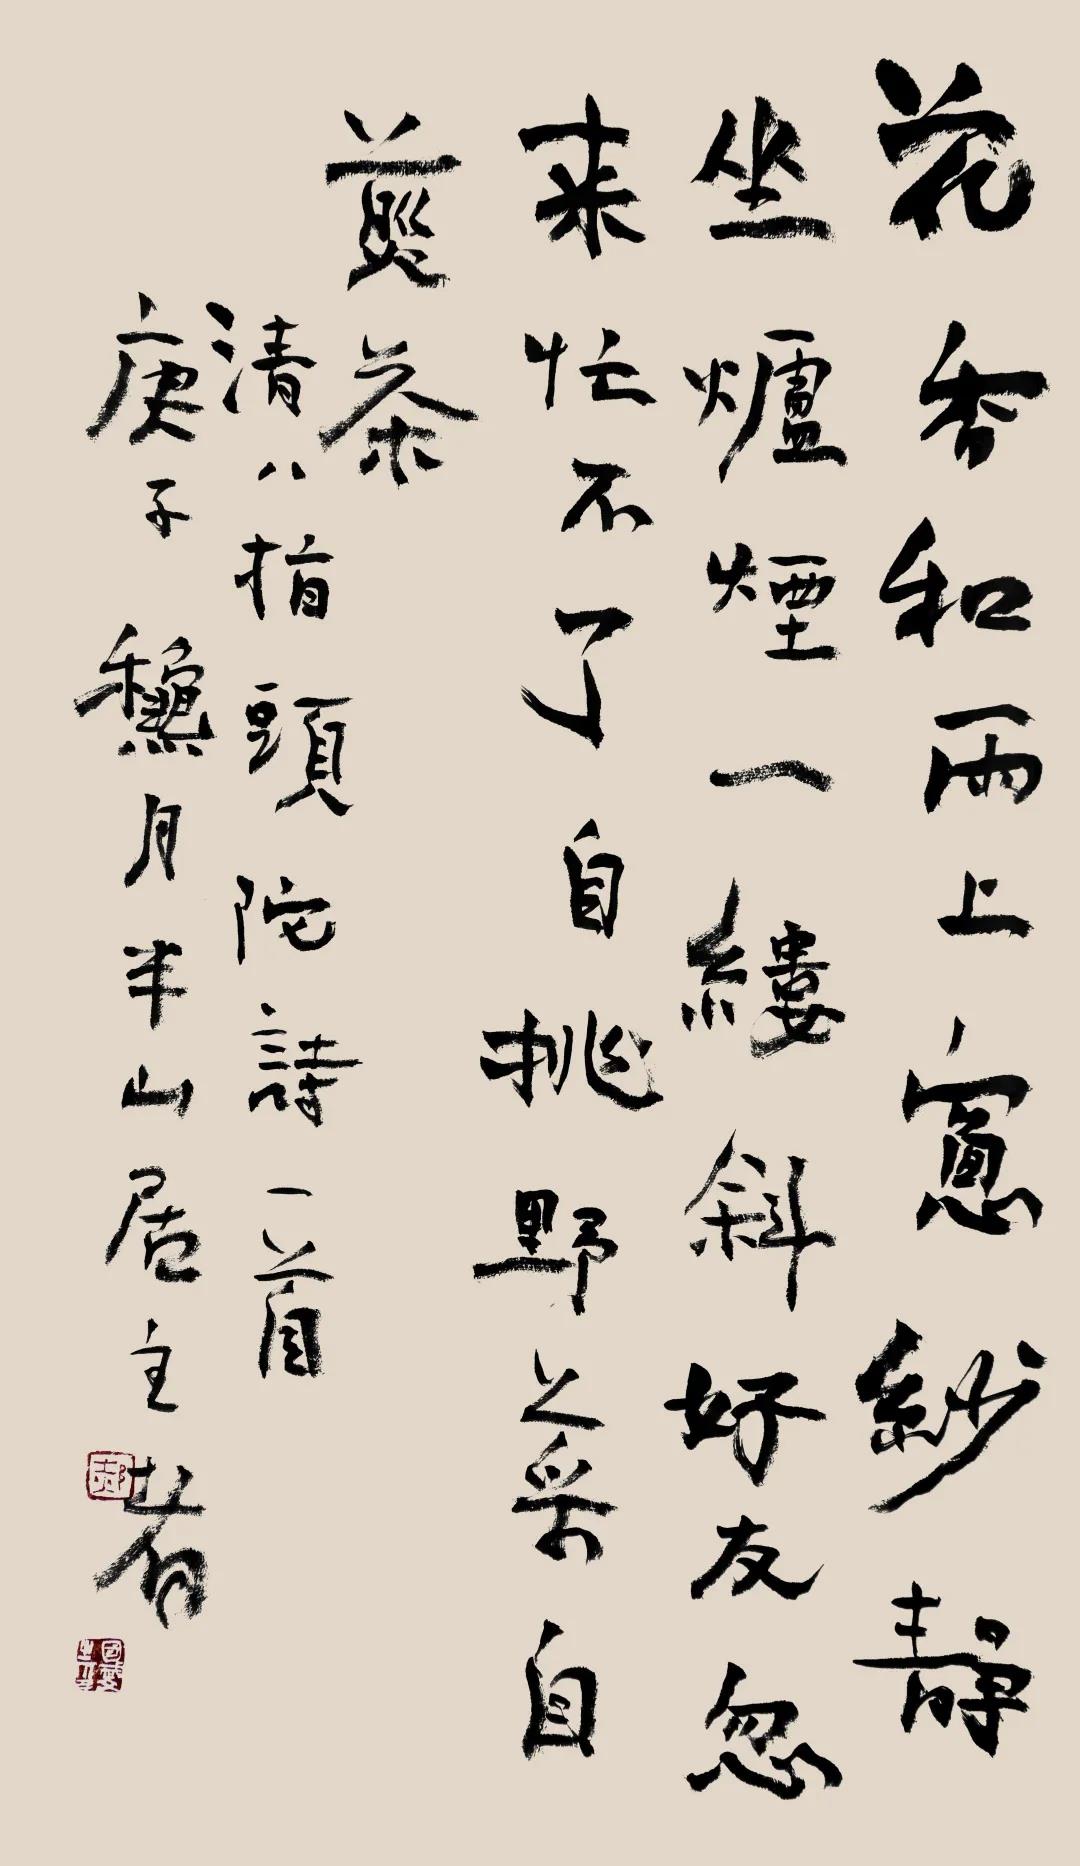 花香和雨上窻紗靜
坐爐煙一縷斜好友忽
来忙不了自挑野菜自
煎茶
清八指頭陀詩一首
庚子龝月半山居主